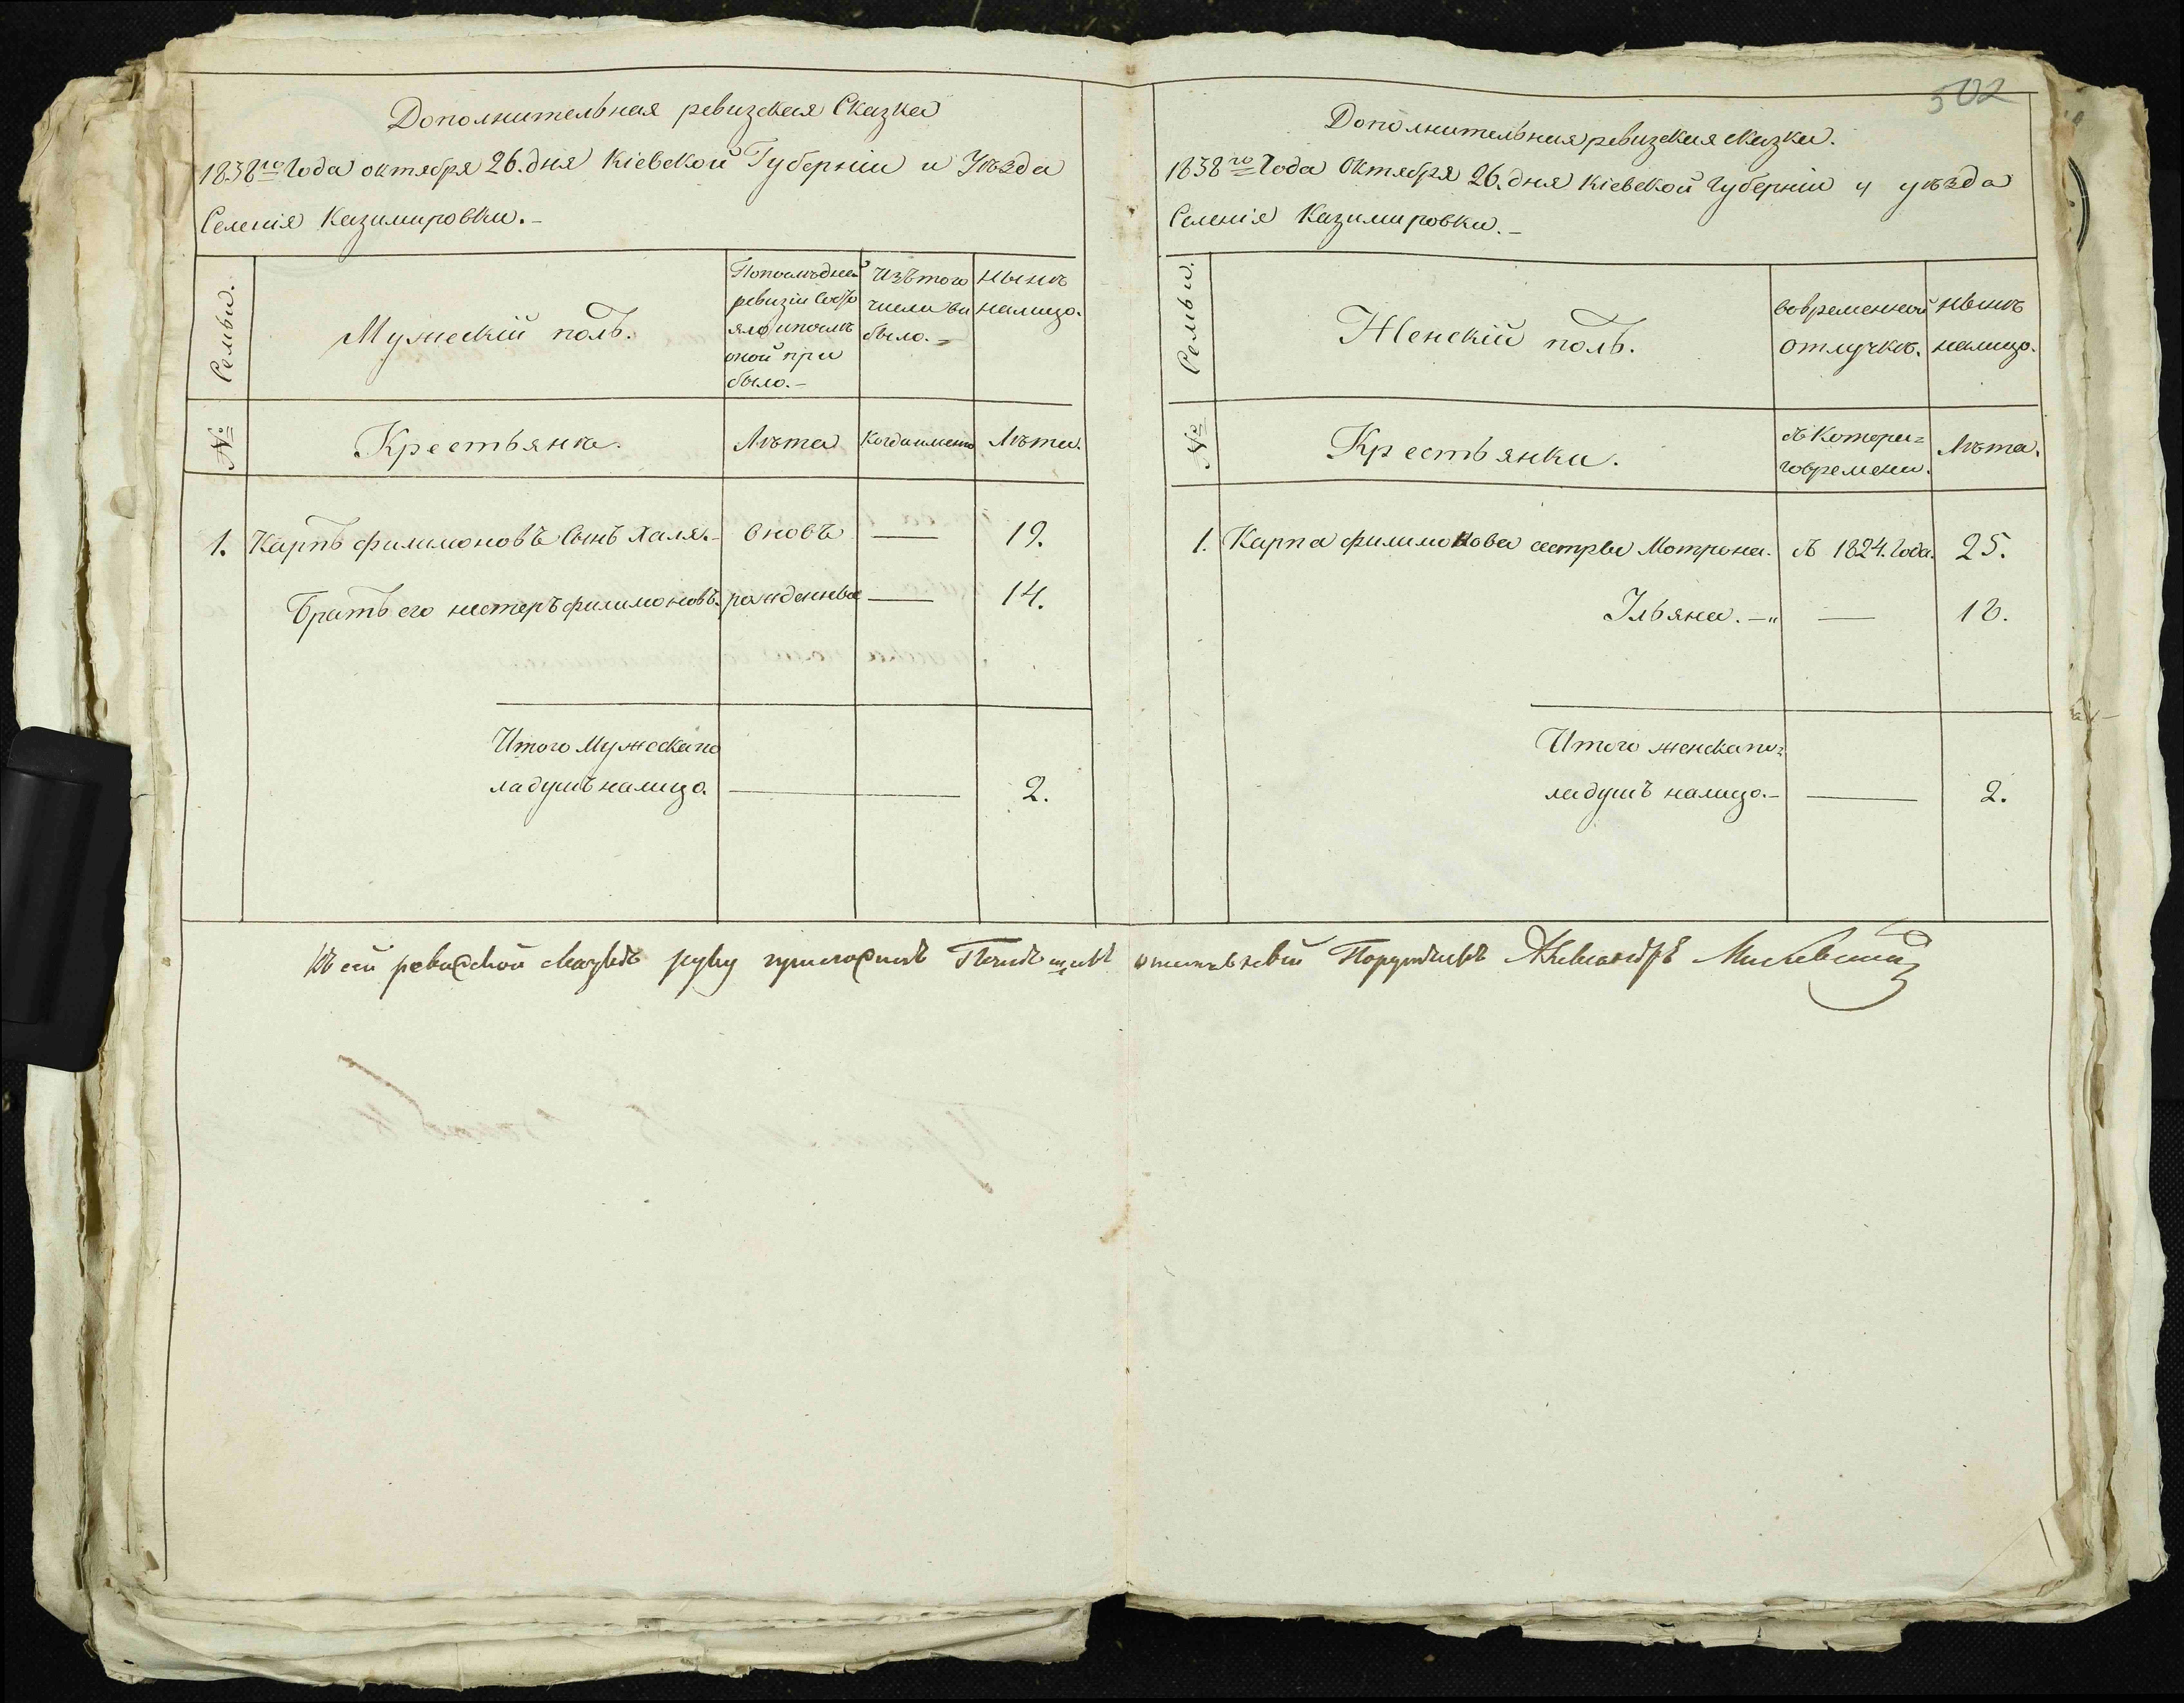 Дополнительная ревизская Сказка
1838го Года октября 26. дня Кіевской Губерніи и Уѣзда
Селенія Казимировки.-
Семьи.
Мужескій полъ.
По последней
ревизіи Состо
яло и послѣ
оной при
было.-
Изъ того
числа вы
было.-
Нынѣ
налицо.
№
Крестьяне.
Лѣта
Когда именно
Лѣта.
1. Карпъ филимоновъ Сынъ Халя.- вновь — 19.
Братъ его нестеръ филимоновъ. рожденные — 14.
Итого Мужеска по
ла душъ налицо. — 2.
502
Дополнительная ревизская сказка.
1838го Года Октября 26. дня Кіевской Губерніи и уѣзда
Селенія Казимировки.-
Семьи.
Женскій полъ.
во временной
отлучкѣ.
Нынѣ
налицо.
№
Крестьянки.
съ Котора-
го времени.
Лѣта.
1. Карпа филимонова сестры Мотрона. съ 1824. Года. 25.
Ільяна. — " — 18.
Итого женска по-
ла душъ налицо.- — 2.
Къ сей ревизской сказкѣ руку приложилъ Помѣщикъ отставный Порутчикъ Александръ